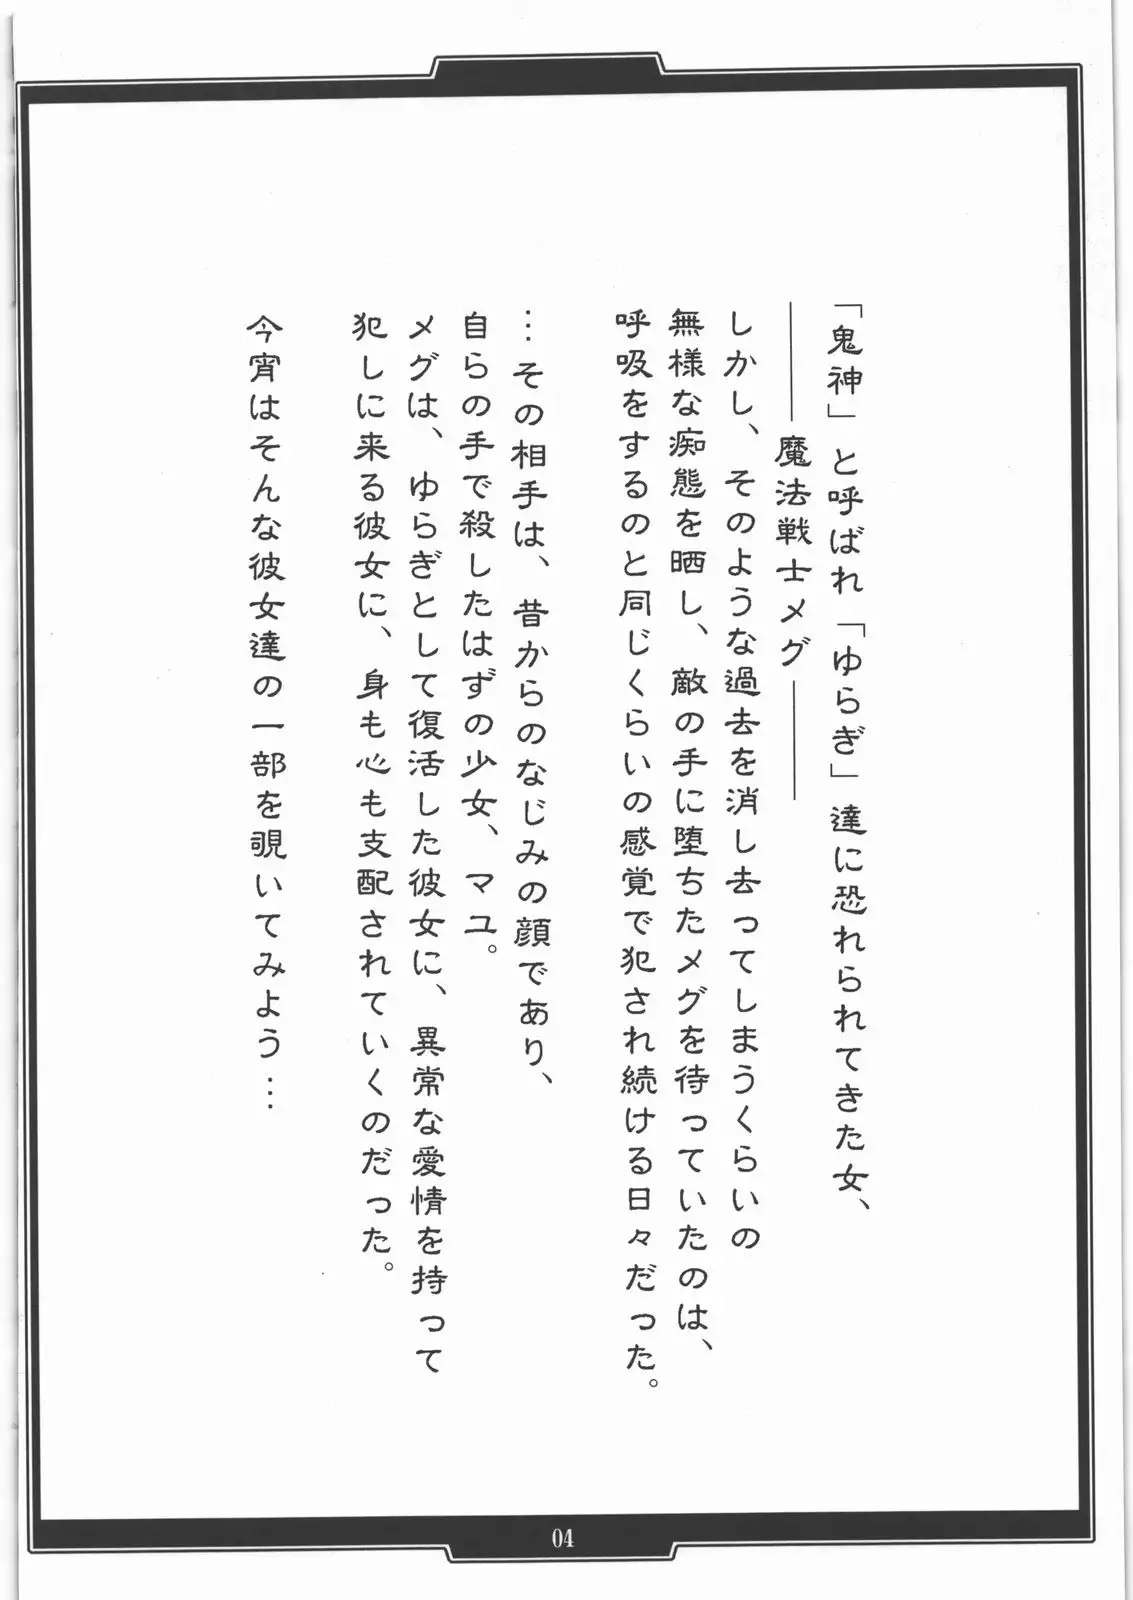 「鬼神」と呼ばれ「ゆらぎ」達に恐れられてきた女、
――― 魔法戦士メグ ―――
しかし、そのような過去を消し去ってしまうくらいの
無様な痴態を晒し、敵の手に堕ちたメグを待っていたのは、
呼吸をするのと同じくらいの感覚で犯され続ける日々だった。
…その相手は、昔からのなじみの顔であり、
自らの手で殺したはずの少女、マユ。
メグは、ゆらぎとして復活した彼女に、異常な愛情を持って
犯しに来る彼女に、身も心も支配されていくのだった。
今宵はそんな彼女達の一部を覗いてみよう…
04